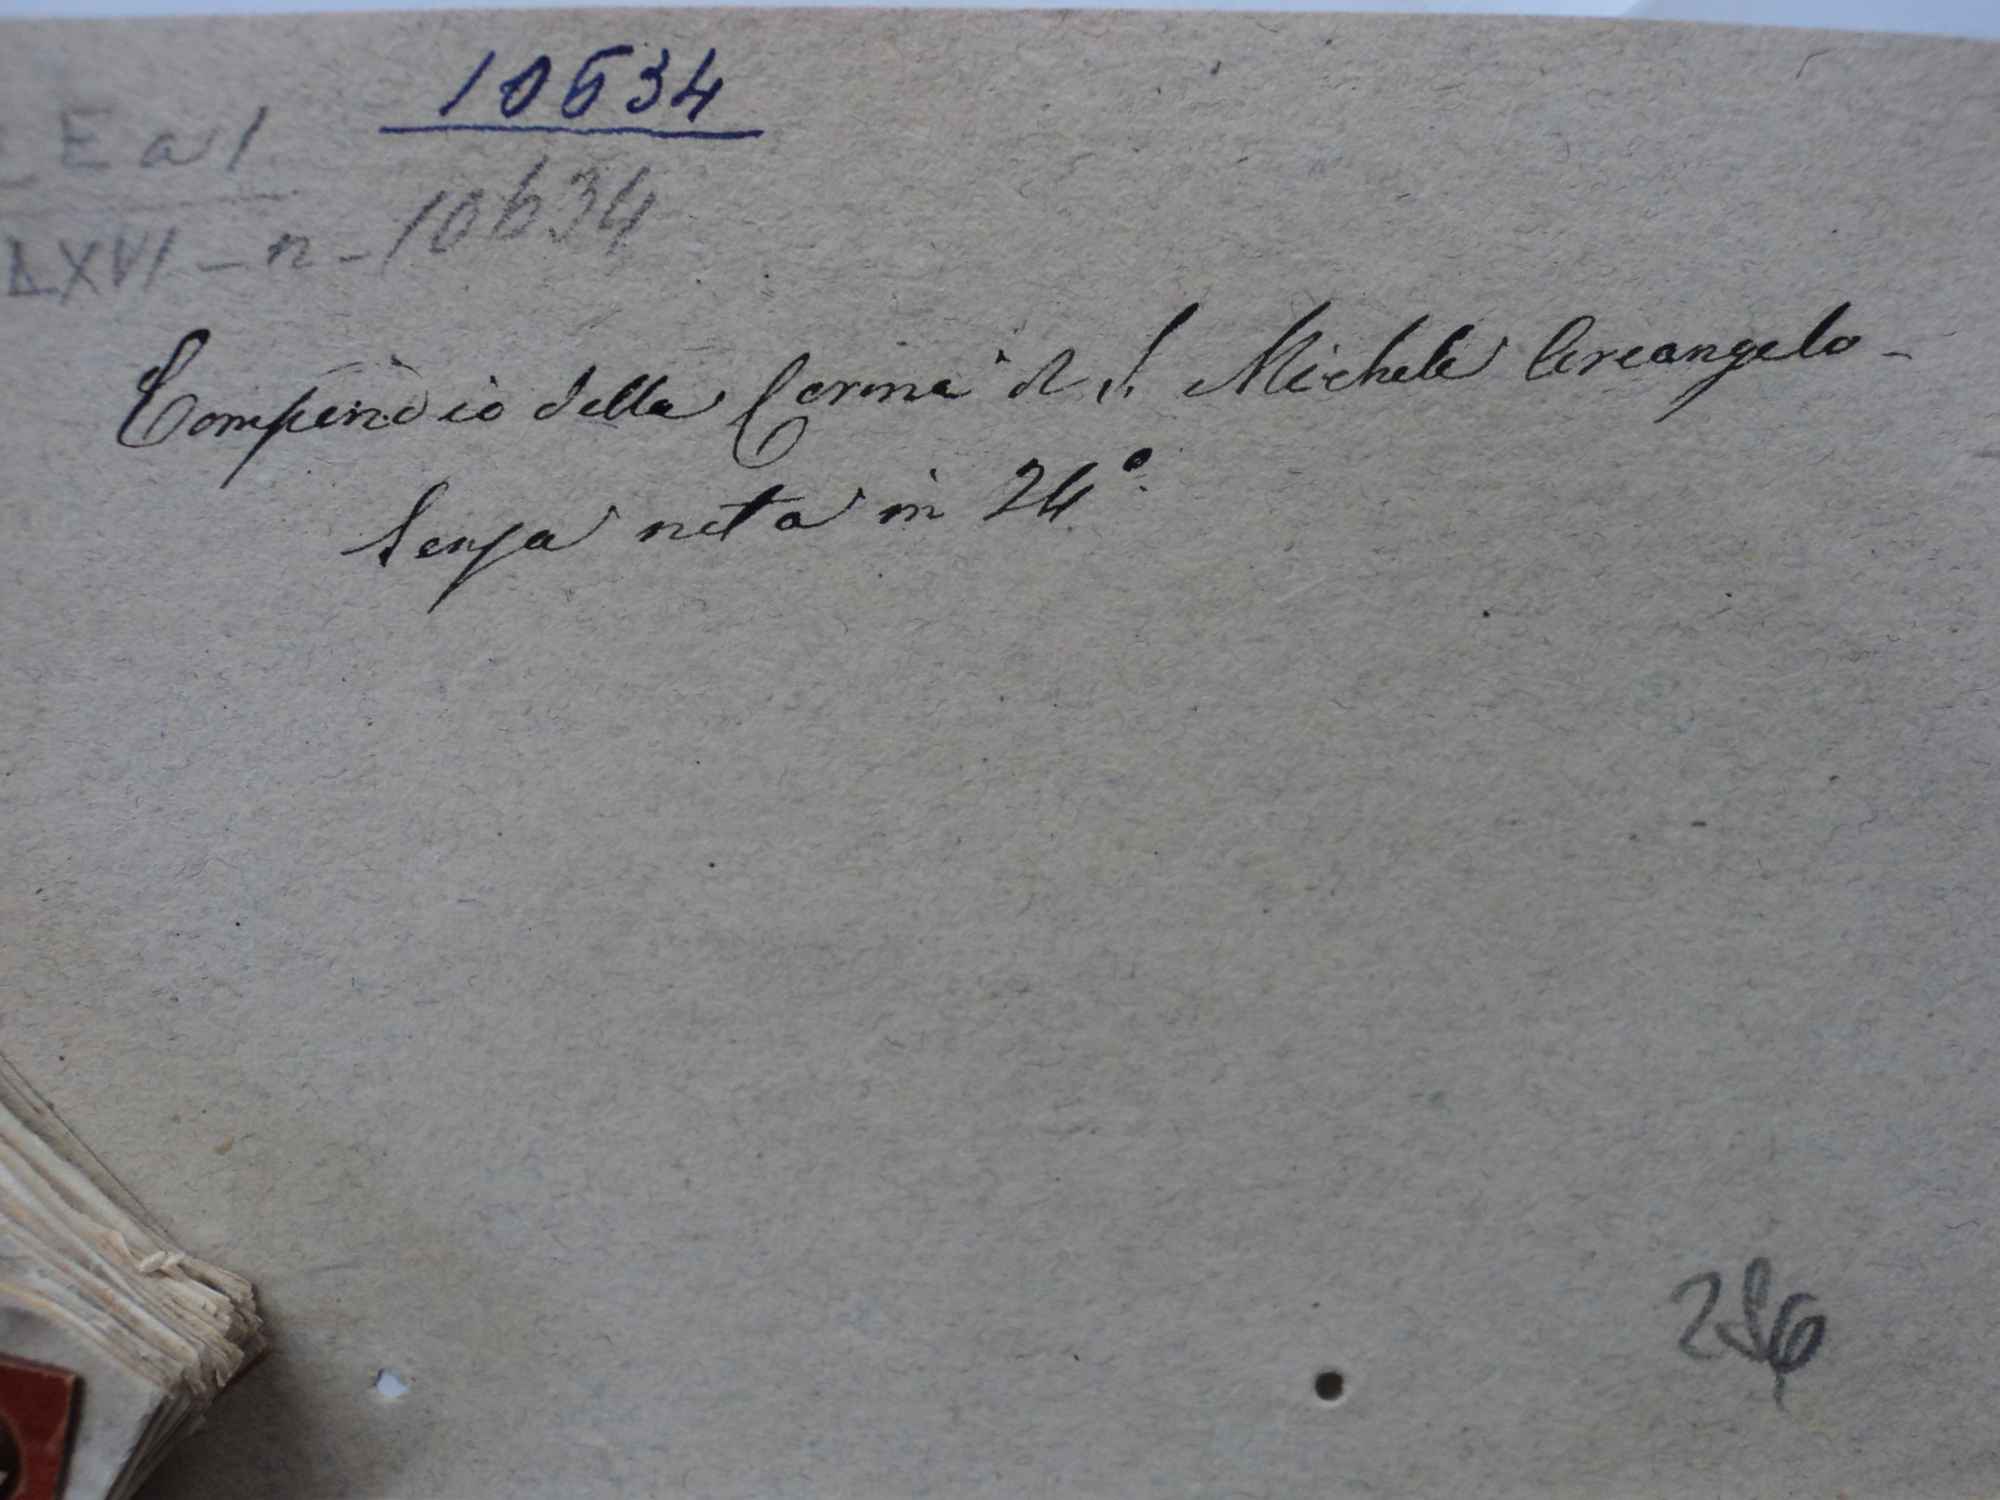 10634
E a 1
LXVI - n - 10634
Compendio della Corona di S. Michele Arcangelo -
Senza nota in 24°.